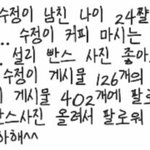 수정이 남친 나이 24짤
.. 수정이 커피 마시는
. 설리 빤스 사진 좋아
수정이 게시물 126개의
이 게시물 402개에 팔로
빤스사진 올려서 팔로워
하해^^